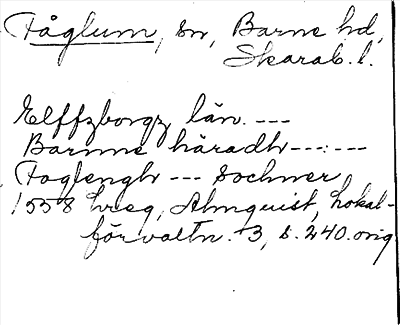 Fåglum, sn, Barne hd,
Skarab. l.
Elffzborgz län. ---
Barnne häradh --- : ---
Foglengh --- Sochner
1558 hreg, Almquist, Lokal-
förvaltn. 3, s. 240. orig.